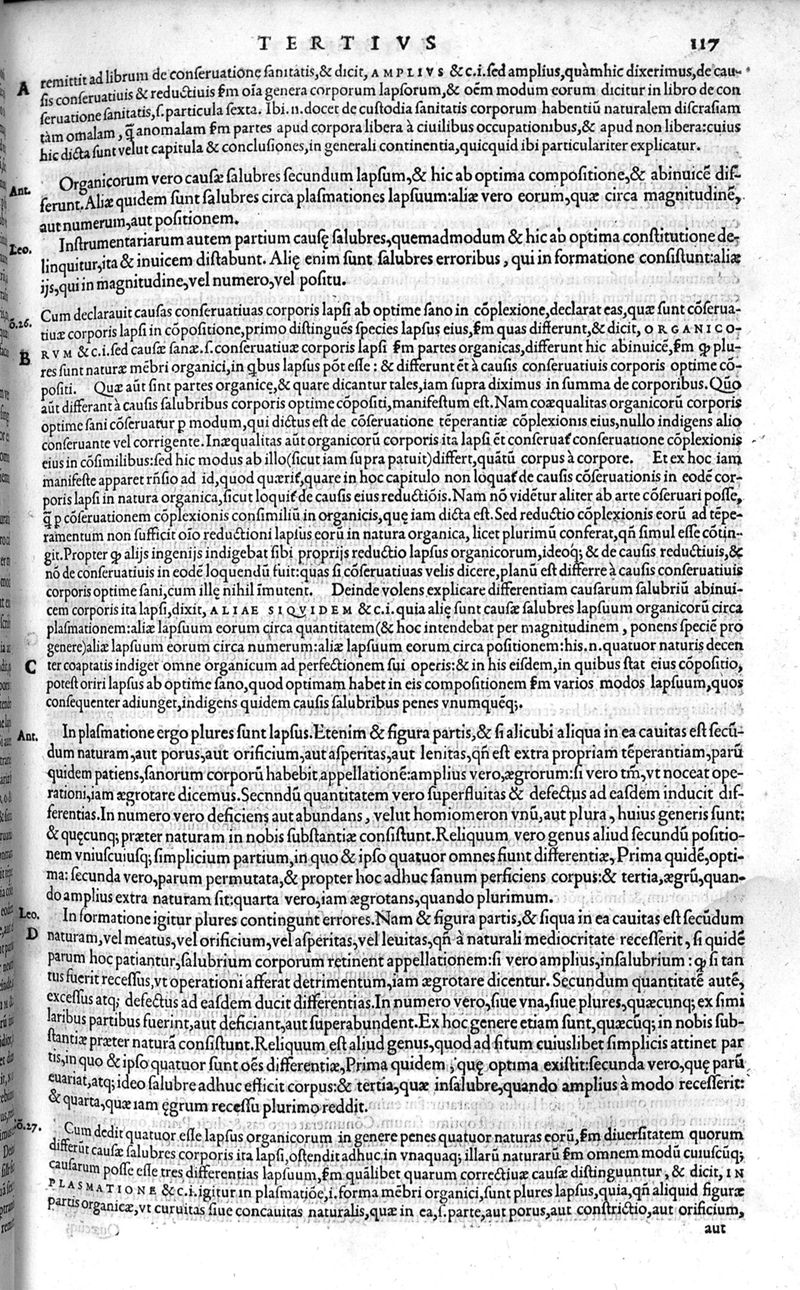 TERTIVS 117
A remittit ad librum de conſeruatione ſanitatis,& dicit, AMPLIVS &c.i.ſed amplius,quàmhic dixerimus,de cau-
ſis conſeruatiuis & reductiuis ſm oīa genera corporum lapſorum,& oēm modum eorum dicitur in libro de con
ſeruatione ſanitatis,ſ.particula ſexta. Ibi.n.docet de cuſtodia ſanitatis corporum habentiū naturalem diſcraſiam
tàm omalam, q̄ anomalam ſm partes apud corpora libera à ciuilibus occupationibus,& apud non libera:cuius
hic dicta ſunt velut capitula & concluſiones,in generali continentia,quicquid ibi particulariter explicatur.
Ant. Organicorum vero cauſæ ſalubres ſecundum lapſum,& hic ab optima compoſitione,& abinuicē diſ-
ferunt.Aliæ quidem ſunt ſalubres circa plaſmationes lapſuum:aliæ vero eorum,quæ circa magnitudinē,
aut numerum,aut poſitionem.
Leo. Inſtrumentariarum autem partium cauſę ſalubres,quemadmodum & hic ab optima conſtitutione de-
linquitur,ita & inuicem diſtabunt. Alię enim ſunt ſalubres erroribus, qui in formatione conſiſtunt:aliæ
ijs,qui in magnitudine,vel numero,vel poſitu.
Cum declarauit cauſas conſeruatiuas corporis lapſi ab optime ſano in cōplexione,declarat eas,quæ ſunt cōſerua-
õ.26. tiuæ corporis lapſi in cōpoſitione,primo diſtinguēs ſpecies lapſus eius,ſm quas differunt,& dicit, ORGANICO-
B RVM &c.i.ſed cauſæ ſanæ.ſ.conſeruatiuæ corporis lapſi ſm partes organicas,differunt hic abinuicē,ſm ꝙ plu-
res ſunt naturæ mēbri organici,in qbus lapſus pōt eſſe : & differunt ēt à cauſis conſeruatiuis corporis optime cō-
poſiti. Quæ aūt ſint partes organicę,& quare dicantur tales,iam ſupra diximus in ſumma de corporibus. Quō
aūt differant à cauſis ſalubribus corporis optime cōpoſiti,manifeſtum eſt.Nam coæqualitas organicorū corporis
optime ſani cōſeruatur p modum,qui dictus eſt de cōſeruatione tēperantiæ cōplexionis eius,nullo indigens alio
conſeruante vel corrigente.Inæqualitas aūt organicorū corporis ita lapſi ēt conſeruaꝉ conſeruatione cōplexionis
eius in cōſimilibus:ſed hic modus ab illo(ſicut iam ſupra patuit)differt,quātū corpus à corpore. Et ex hoc iam
manifeſte apparet rñſio ad id,quod quærit,quare in hoc capitulo non loquaꝉ de cauſis cōſeruationis in eodē cor-
poris lapſi in natura organica,ſicut loquiꝉ de cauſis eius reductiōis.Nam nō vidētur aliter ab arte cōſeruari poſſe,
q̄ p cōſeruationem cōplexionis conſimiliū in organicis,quę iam dicta eſt.Sed reductio cōplexionis eorū ad tēpe-
ramentum non ſufficit oīo reductioni lapſus eorū in natura organica, licet plurimū conferat,qñ ſimul eſſe cōtin-
git.Propter ꝙ alijs ingenijs indigebat ſibi proprijs reductio lapſus organicorum,ideoq; & de cauſis reductiuis,&
nō de conſeruatiuis in eodē loquendū fuit:quas ſi cōſeruatiuas velis dicere,planū eſt differre à cauſis conſeruatiuis
corporis optime ſani,cum illę nihil īmutent. Deinde volens explicare differentiam cauſarum ſalubriū abinui-
cem corporis ita lapſi,dixit, ALIAE SIQVIDEM &c.i. quia alię ſunt cauſæ ſalubres lapſuum organicorū circa
plaſmationem:aliæ lapſuum eorum circa quantitatem(& hoc intendebat per magnitudinem , ponens ſpeciē pro
genere)aliæ lapſuum eorum circa numerum:aliæ lapſuum eorum circa poſitionem:his.n.quatuor naturis decen
C ter coaptatis indiget omne organicum ad perfectionem ſui operis:& in his eiſdem,in quibus ſtat eius cōpoſitio,
poteſt oriri lapſus ab optime ſano,quod optimam habet in eis compoſitionem ſm varios modos lapſuum,quos
conſequenter adiunget,indigens quidem cauſis ſalubribus penes vnumquēq;.
Ant. In plaſmatione ergo plures ſunt lapſus.Etenim & figura partis,& ſi alicubi aliqua in ea cauitas eſt ſecū-
dum naturam,aut porus,aut orificium,aut aſperitas,aut lenitas,qñ eſt extra propriam tēperantiam,parū
quidem patiens,ſanorum corporū habebit appellationē:amplius vero,ægrorum:ſi vero tm̄,vt noceat ope-
rationi,iam ægrotare dicemus.Secnndū quantitatem vero ſuperfluitas & defectus ad eaſdem inducit diſ-
ferentias.In numero vero deficiens aut abundans, velut homiomeron vnū,aut plura, huius generis ſunt:
& quęcunq; præter naturam in nobis ſubſtantiæ conſiſtunt.Reliquum vero genus aliud ſecundū poſitio-
nem vniuſcuiuſq; ſimplicium partium,in quo & ipſo quatuor omnes fiunt differentiæ, Prima quidē,opti-
ma: ſecunda vero,parum permutata,& propter hoc adhuc ſanum perficiens corpus:& tertia,ægrū,quan-
do amplius extra naturam ſit:quarta vero,iam ægrotans,quando plurimum.
Leo. In formatione igitur plures contingunt errores.Nam & figura partis,& ſiqua in ea cauitas eſt ſecūdum
D naturam,vel meatus,vel orificium,vel aſperitas,vel leuitas,qñ à naturali mediocritate receſſerit, ſi quidē
parum hoc patiantur,ſalubrium corporum retinent appellationem:ſi vero amplius,inſalubrium : ꝙ ſi tan
tus fuerit receſſus,vt operationi afferat detrimentum,iam ægrotare dicentur. Secundum quantitatē autē,
exceſſus atq; defectus ad eaſdem ducit differentias.In numero vero,ſiue vna,ſiue plures,quæcunq; ex ſimi
laribus partibus fuerint,aut deficiant,aut ſuperabundent.Ex hoc genere etiam ſunt,quæcūq; in nobis ſub-
ſtantiæ præter naturā conſiſtunt.Reliquum eſt aliud genus,quod ad ſitum cuiuſlibet ſimplicis attinet par
tis,in quo & ipſo quatuor ſunt oēs differentiæ,Prima quidem , quę optima exiſtit:ſecunda vero,quę parū
euariat,atq; ideo ſalubre adhuc efficit corpus:& tertia,quæ inſalubre,quando amplius à modo receſſerit:
& quarta,quæ iam ęgrum receſſu plurimo reddit.
õ.27. Cum dedit quatuor eſſe lapſus organicorum in genere penes quatuor naturas eorū,ſm diuerſitatem quorum
differūt cauſæ ſalubres corporis ita lapſi,oſtendit adhuc in vnaquaq; illarū naturarū ſm omnem modū cuiuſcūq;
cauſarum poſſe eſſe tres differentias lapſuum,ſm quālibet quarum correctiuæ cauſæ diſtinguuntur, & dicit, IN
PLASMATIONE &c.i.igitur in plaſmatiōe,i.forma mēbri organici,ſunt plures lapſus,quia,qñ aliquid figuræ
partis organicæ,vt curuitas ſiue concauitas naturalis,quæ in ea,ſ.parte,aut porus,aut conſtrictio,aut orificium,
aut